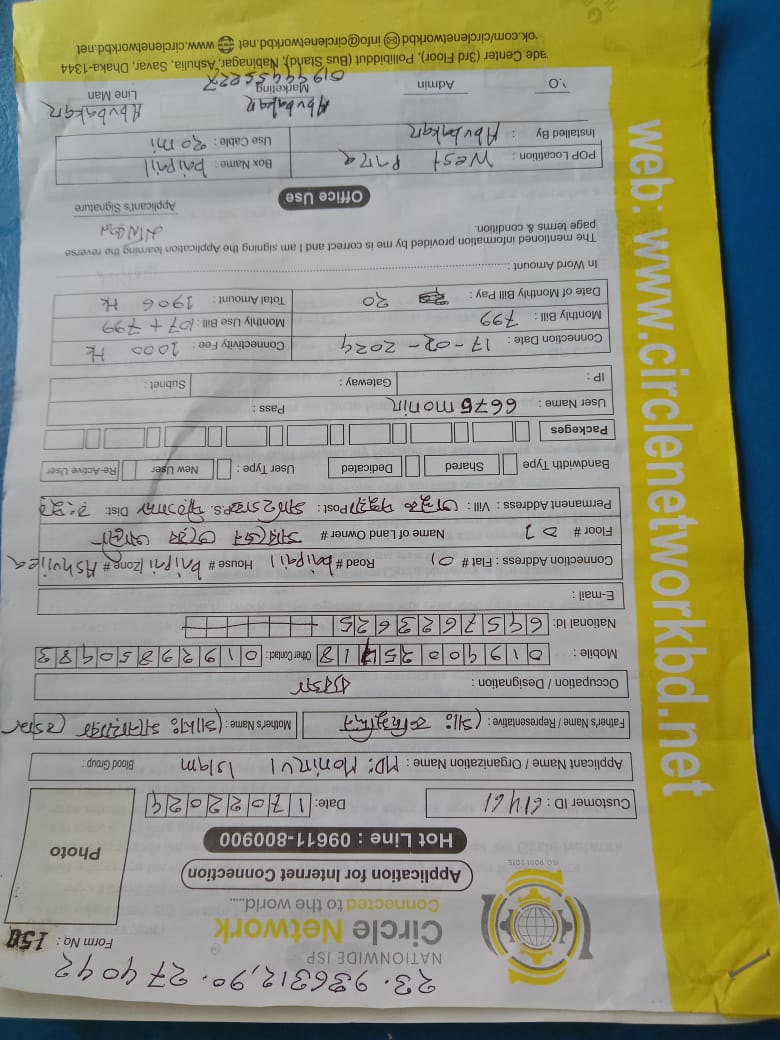 23.936312,90.274042
NATIONWIDE ISP
Circle Network
Connected to the world.....
ISO 9001:2015
Form No : 150
Application for Internet Connection
Photo
Hot Line : 09611-800900
Customer ID : 61461 Date: 17022024
Applicant Name / Organization Name : MD: Monirul Islam Blood Group :
Father's Name / Representative : Mother's Name :
Occupation / Designation :
Mobile : 01940025418 Other Contact : 01929850483
National Id: 6457623625
E-mail :
Connection Address : Flat # 01 Road # baipail House # baipail Zone # Ashuliea
Floor # Name of Land Owner #
Permanent Address : Vill : Post : P.S. Dist:
Bandwidth Type Shared Dedicated User Type : New User Re-Active User
Packeges
User Name : 6675monir Pass :
IP : Gateway : Subnet :
Connection Date : 17-02-2024 Connectivity Fee : 1000 tk
Monthly Bill : 799 Monthly Use Bill : 107+799
Date of Monthly Bill Pay : 20 Total Amount : 1906 tk
In Word Amount :
The mentioned information provided by me is correct and I am signing the Application learning the reverse
page terms & condition.
Applicant's Signature
Office Use
POP Locatiion : West Para Box Name : baipail
Installed By : Abubakar Use Cable : 90 mi
Abubakar Abubakar
Admin Marketing Line Man
ade Center (3rd Floor), Pollibiddut (Bus Stand), Nabinagar, Ashulia, Savar, Dhaka-1344
ok.com/circlenetworkbd info@circlenetworkbd.net www.circlenetworkbd.net
web: www.circlenetworkbd.net